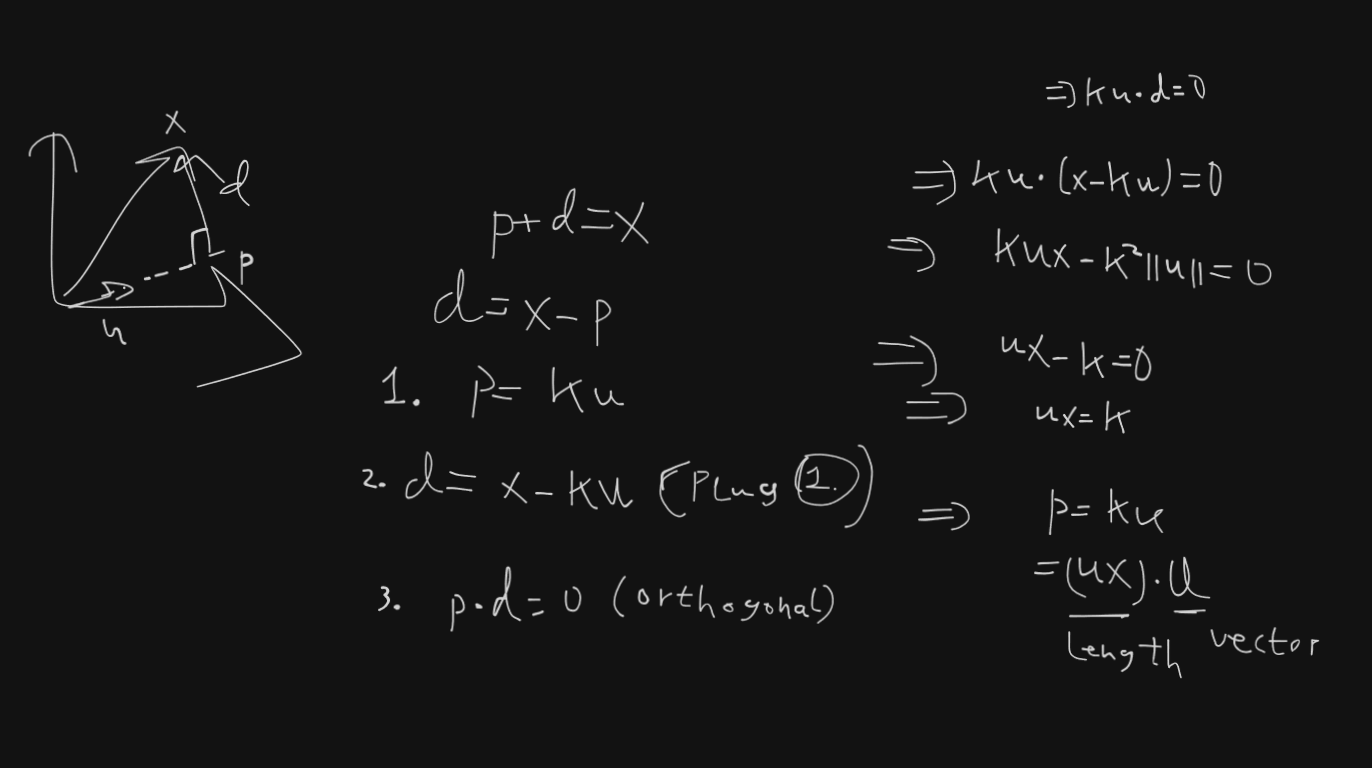 x
d
p
u
p+d=x
d=x-p
1. p=ku
2. d=x-ku (Plug 1.)
3. p·d=0 (orthogonal)
⇒ku·d=0
⇒ku·(x-ku)=0
⇒ kux-k²||u||=0
⇒ ux-k=0
⇒ ux=k
⇒ p=ku
=(ux)·u
length vector